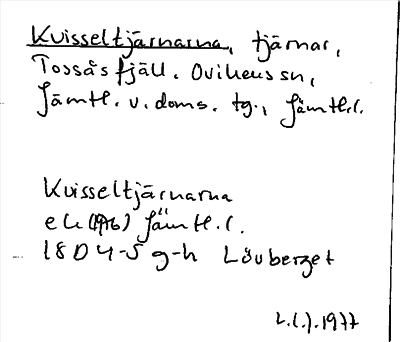 Kvisseltjärnarna, tjärnar,
Tossås fjäll. Ovikens sn,
Jämtl. v. doms. tg., Jämtl.l.
Kvisseltjärnarna
ek (1976) Jämtl.l.
18D 4-5 g-h Lövberget
L.l.). 1977